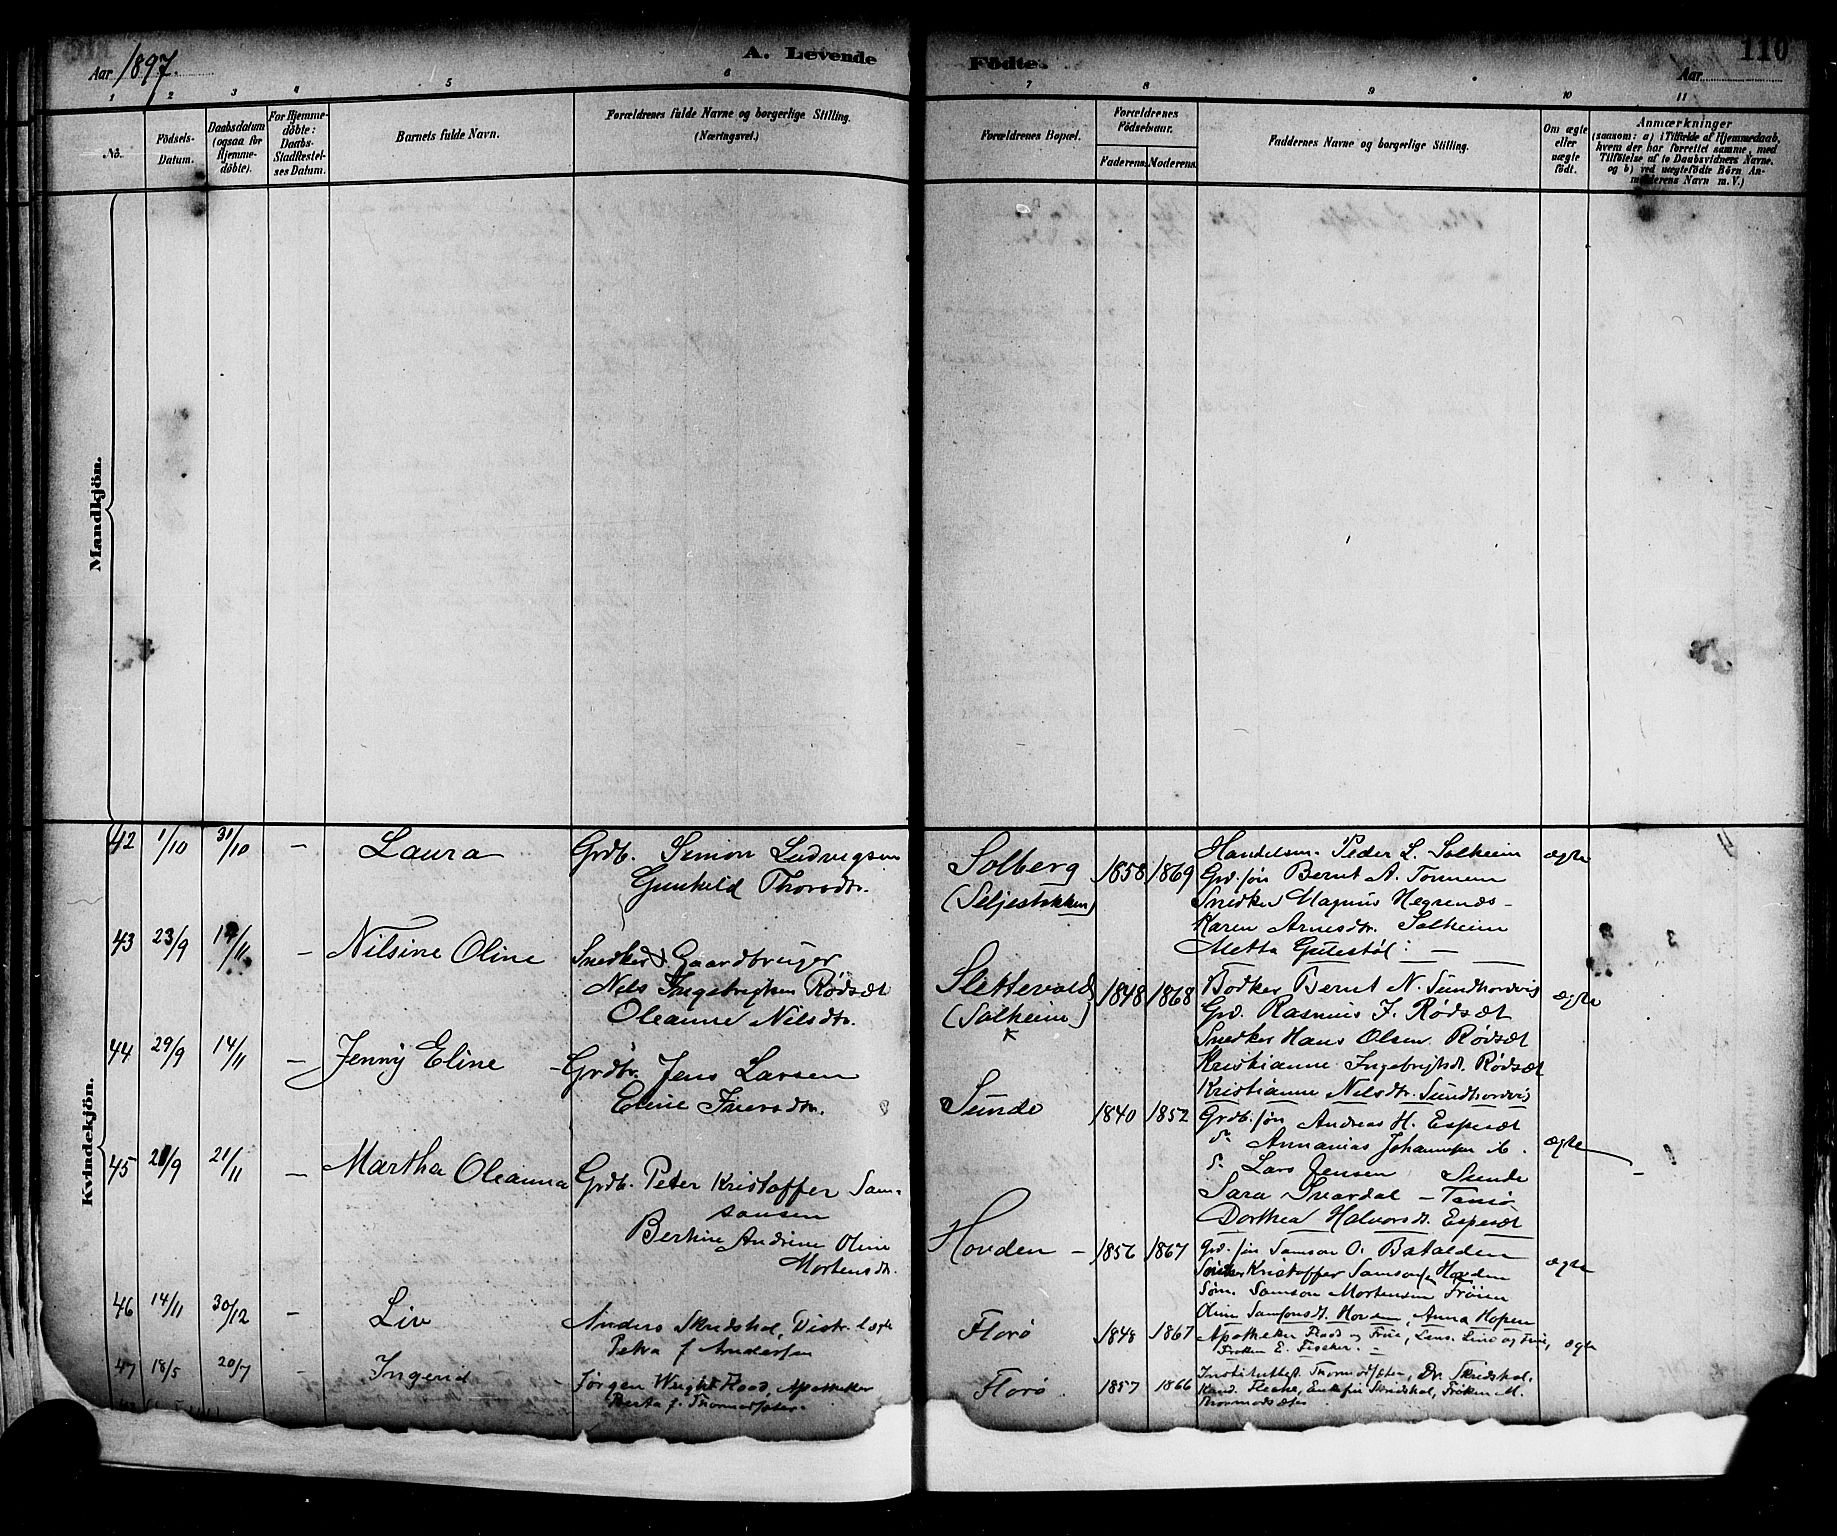 Aar 1897.
A. Levende
Födte.
Aar
110
1 2 3 4 5 6 7 8 9 10 11
No.
Födsels-
Datum.
Daabsdatum
(ogsaa for
Hjemme-
döbte).
For Hjemme-
döbte:
Daabs-
Stadfæstel-
ses Datum.
Barnets fulde Navn.
Forældrenes fulde Navne og borgerlige Stilling.
(Næringsvei.)
Forældrenes Bopæl.
Forældrenes
Födselsaar.
Faderens. Moderens.
Faddernes Navne og borgerlige Stilling.
Om ægte
eller
uægte
födt.
Anmærkninger
(saasom: a) i Tilfælde af Hjemmedaab,
hvem der har forrettet samme, med
Tilföielse af to Daabsvidners Navne,
og b) ved uægtefödte Börn An-
melderens Navn m. V.)
Mandkjön.
Kvindekjön.
42 1/10 31/10 – Laura
Grdb. Simon Ludvigsen
Gunhild Thorsdtr.
Solberg
(Seljestokken)
1858 1869
Handelsm. Peder L. Solheim
Grd. søn Bernt A. Tonnem
Snedker Magnus Hegrenæs –
Karen Arnesdtr. Solheim
Metta Gulestøl –
ægte
43 23/9 14/11 – Nilsine Oline
Snedker & Gaardbruger
Nils Ingebrigtsen Rødsæt
Oleanne Nilsdtr.
Slettevold
(Solheim)
1848 1868
Bødker Bernt N. Sundhordvig
Grd. Rasmus I. Rødsæt
Snedker Hans Olsen Rødsæt
Kristianne Ingebrigtsdt. Rødsæt
Kristianne Nilsdtr. Sundhordvig
ægte
44 29/9 14/11 – Jenny Eline
Grdbr. Jens Larsen
Eline Iversdtr.
Sunde
1840 1852
Grdb. søn Andreas H. Espesæt
d. Annanias Johannesen
d. Lars Jensen Sunde
Sara Svardal – Tansø
Dorthea Halvorsdt. Espesæt
ægte
45 21/9 21/11 – Martha Oleanna
Grdb. Peter Kristoffer Sam-
sonsen
Bertine Andrine Oline
Mortensdtr.
Hovden –
1856 1867
Grd. søn Samson O. Batalden
Kristoffer Samsonsen Hovden
Søm. Samson Mortensen Frøien
Oline Samsonsdt. Hovden, Anna Hopen
ægte
46 14/11 30/12 – Liv
Anders Skridshol, Distr. læge
Petra f. Andersen
Florø
1848 1867
Apotheker Flood og Frue, Lens. Lind og Frue,
Frøken E. Fischer. –
ægte
47 18/5 20/7 – Ingerid
Jørgen Wright Flood, Apotheker
Berta f. Thormodsæter.
Florø
1857 1866
Institutbest. Thormodsæter, Dr. Skridshol,
Kand. Flecke, Enkefru Skridshol, Frøken M.
Thormodsæter